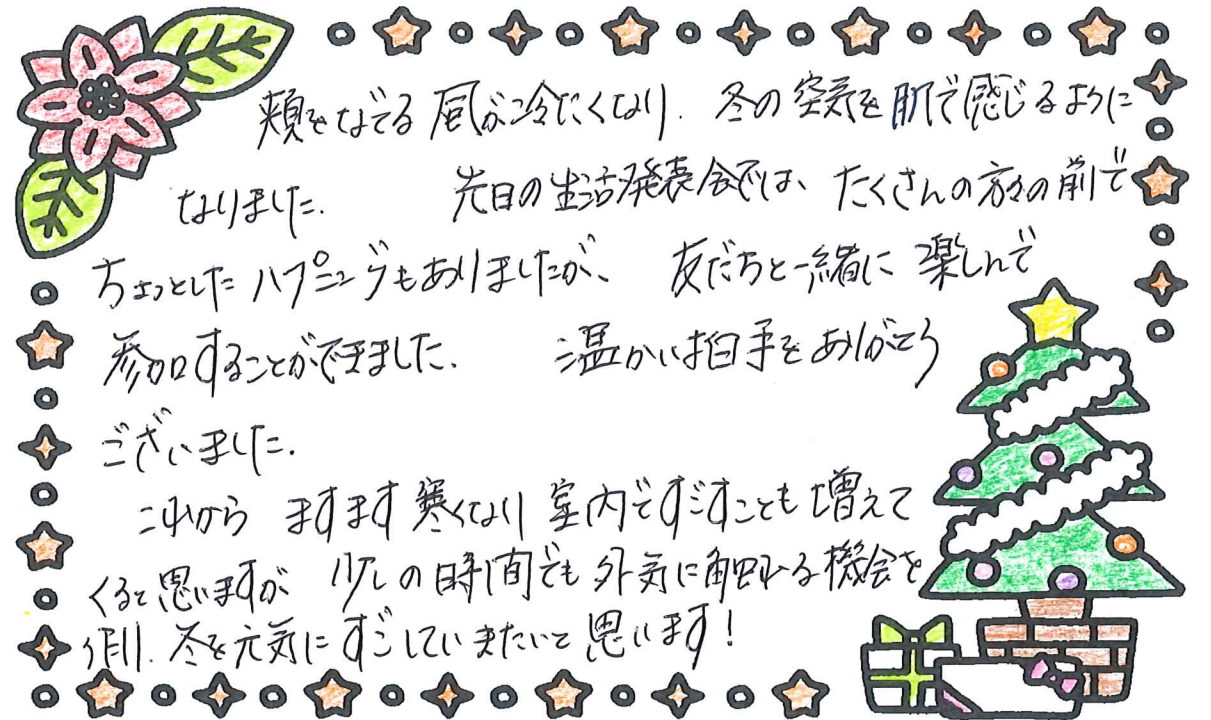 頬をなでる風が冷たくなり. 冬の空気を肌で感じるように
なりました. 先日の生活発表会では、たくさんの方々の前で
ちょっとしたハプニングもありましたが、友だちと一緒に楽しんで
参加することができました. 温かい拍手をありがとう
ございました.
これから ますます寒くなり 室内ですごすことも増えて
くると思いますが 少しの時間でも外気に触れる機会を
作り. 冬を元気にすごしていきたいと思います!